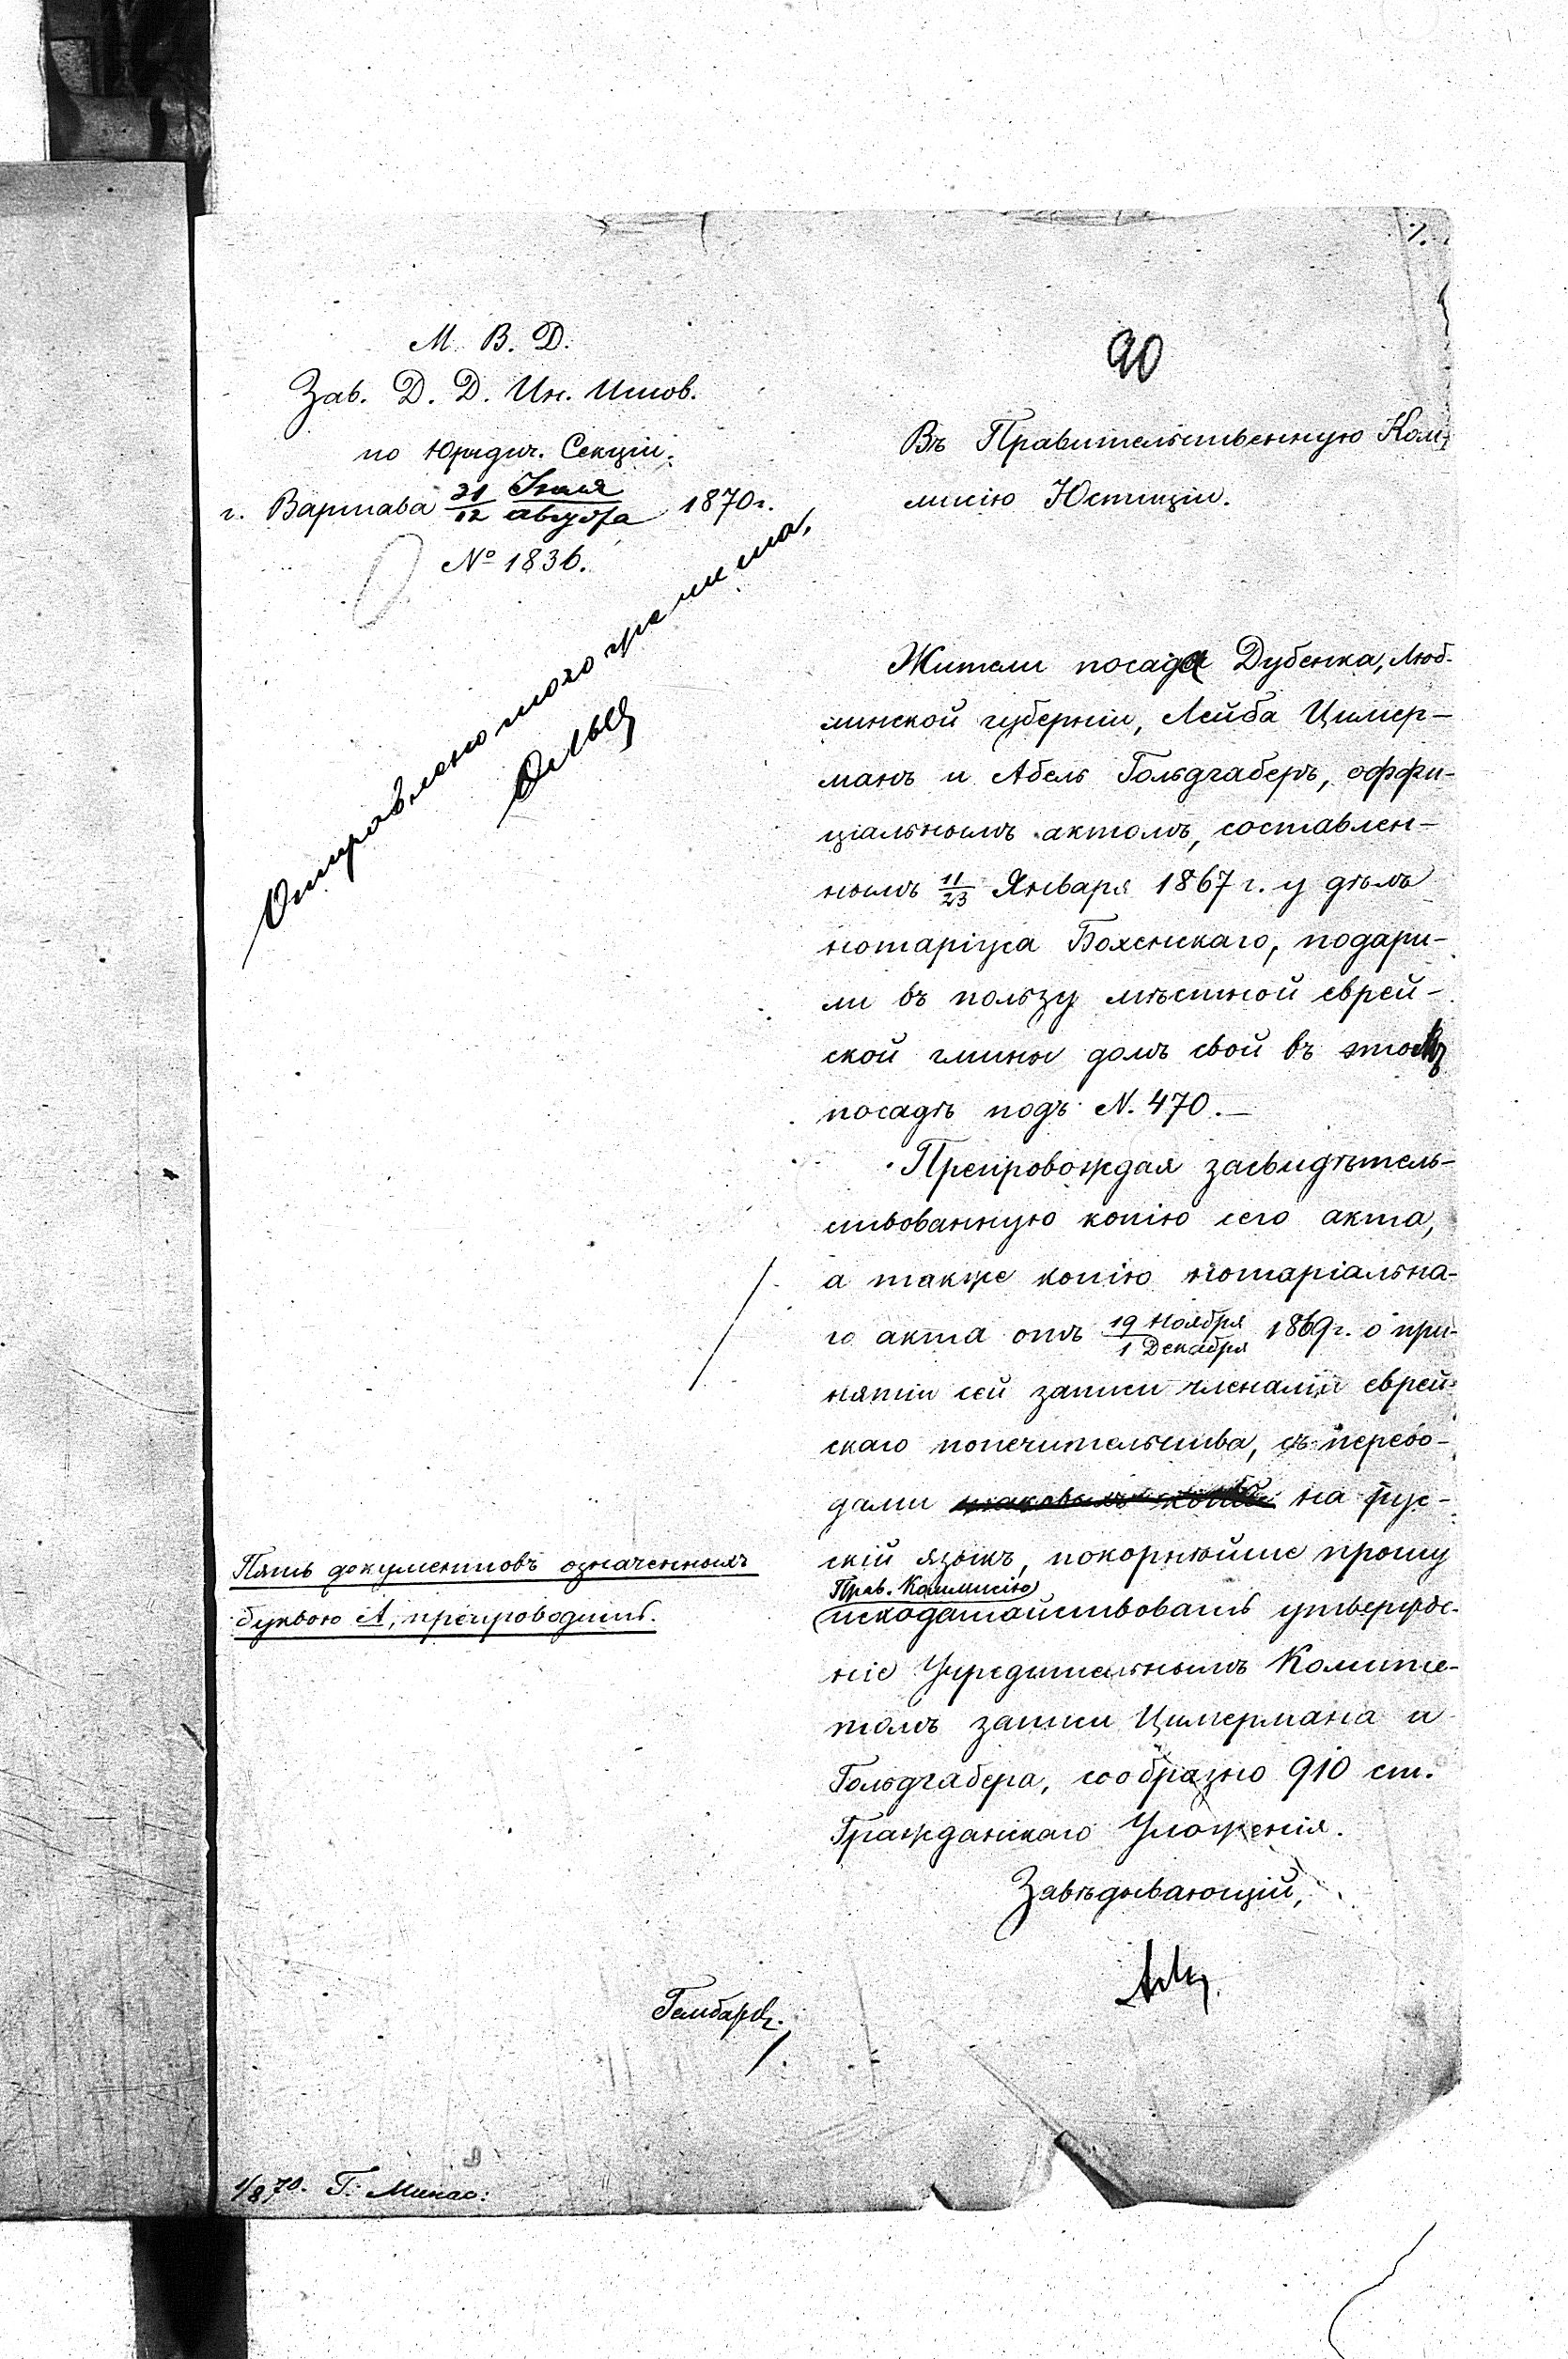 90
М. В. Д.
Зав. Д. Д. Ин. Испов.
по Юридич. Секціи.
г. Варшава 31 Іюля / 12 августа 1870 г.
№ 1836.
Отправлено того же числа,
Въ Правительственную Ком-
мисію Юстиціи.
Жители посада Дубенка, Люб-
линской губерніи, Лейба Цимер-
манъ и Абель Гольдгаберъ, оффи-
ціальнымъ актомъ, составлен-
нымъ 11/23 Января 1867 г. у дѣлъ
нотаріуса Боженскаго, подари-
ли въ пользу мѣстной еврей-
ской гмины домъ свой въ этомъ
посадѣ подъ N. 470.—
Препровождая засвидѣтель-
ствованную копію сего акта,
а также копію нотаріальна-
го акта отъ 19 Ноября / 1 Декабря 1869 г. о при-
нятіи сей записи членами еврей-
скаго попечительства, съ перево-
дами на рус-
скій языкъ, покорнѣйше прошу
Прав. Коммисію
исходатайствовать утвержде-
ніе Учредительнымъ Комите-
томъ записи Цимермана и
Гольдгабера, сообразно 910 ст.
Гражданскаго Уложенія.
Завѣдывающій,
Пять документовъ означенныхъ
буквою А, препроводить.
1/8 70.